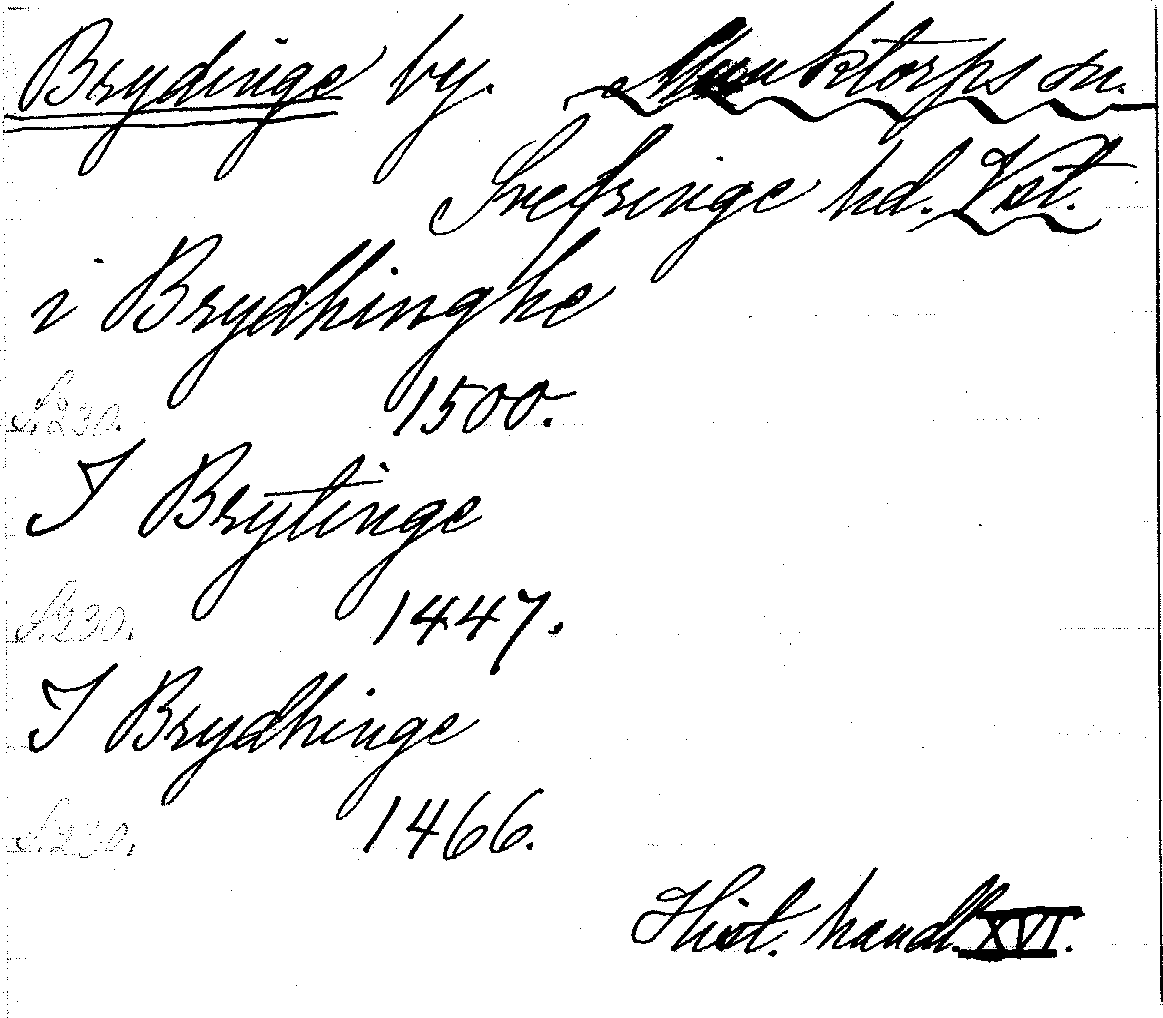 Brydinge by. Munktorps sn.
Snefringe hd. Vst.
i Brydhinghe
S. 230. 1500.
I Brytinge
S. 230. 1447.
I Brydhinge
S. 230. 1466.
Hist. handl. XVI.